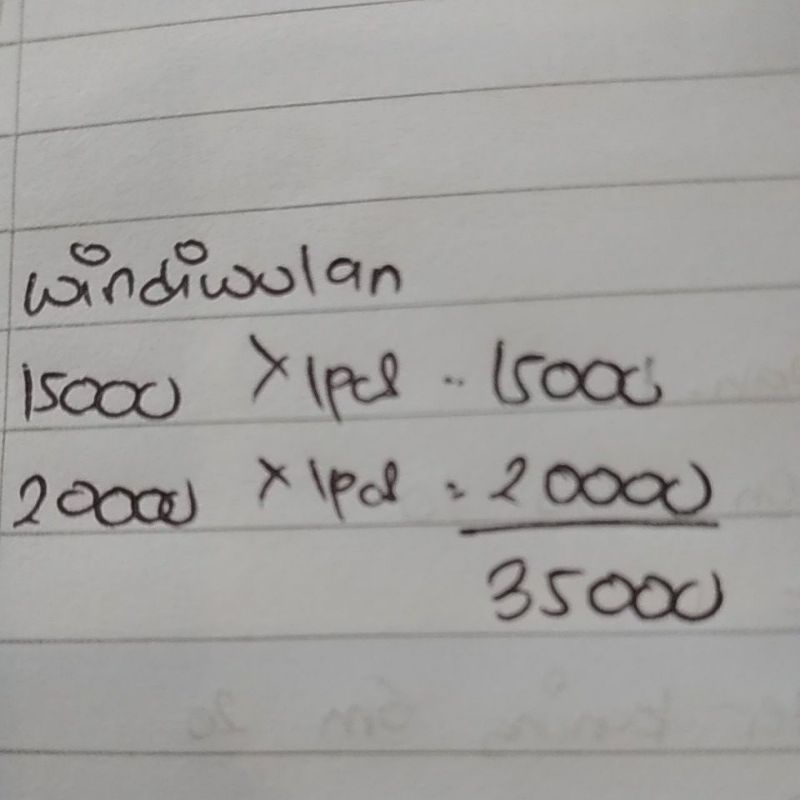 windiwulan
15000 x 1pcs = 15000
20000 x 1pcs = 20000
35000